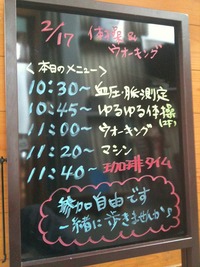 2/17 体操&
ウォーキング
<本日のメニュー>
10:30~ 血圧・脈測定
10:45~ ゆるゆる体操(2F)
11:00~ ウォーキング
11:20~ マシン
11:40~ 珈琲タイム
参加自由です
一緒に歩きませんか♪